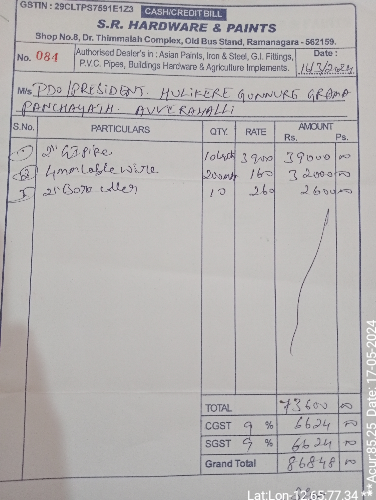 GSTIN : 29CLTPS7691E1Z3 CASH/CREDIT BILL
S.R. HARDWARE & PAINTS
Shop No.8, Dr. Thimmaiah Complex, Old Bus Stand, Ramanagara - 562159.
No. 084 Authorised Dealer's in : Asian Paints, Iron & Steel, G.I. Fittings, P.V.C. Pipes, Buildings Hardware & Agriculture Implements. Date :
M/s PDO/PRESIDENT. HULIKERE GUNNURE GRAMA
PANCHAYATH. AVVERAHALLI
S.No. PARTICULARS QTY. RATE AMOUNT
Rs. Ps.
1 2" GI Pipe 3900 39000 00
2 4mm Cable wire 160 32000 00
3 2" 10 260 2600 00
TOTAL 73600 00
CGST 9 % 6624 00
SGST 9 % 6624 00
Grand Total 86848 00
Lat Lon-12.65:77.34 ***Acur:85.25 Date: 17-05-2024